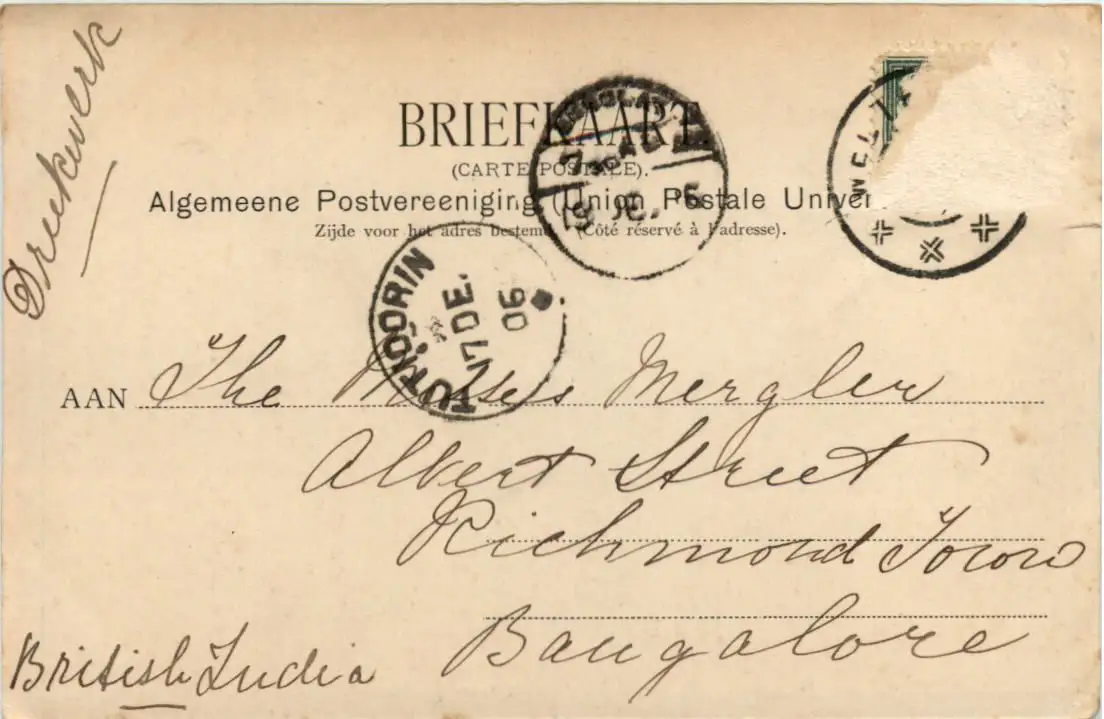 Drukwerk
BRIEFKAART.
(CARTE POSTALE).
Algemeene Postvereeniging (Union Postale Univer
Zijde voor het adres bestemd. (Côté réservé à l'adresse).
TUTICORIN
17 DE.
06
19 DE. 06
AAN The Misses Mergler
Albert Street
Richmond Town
Bangalore
British India